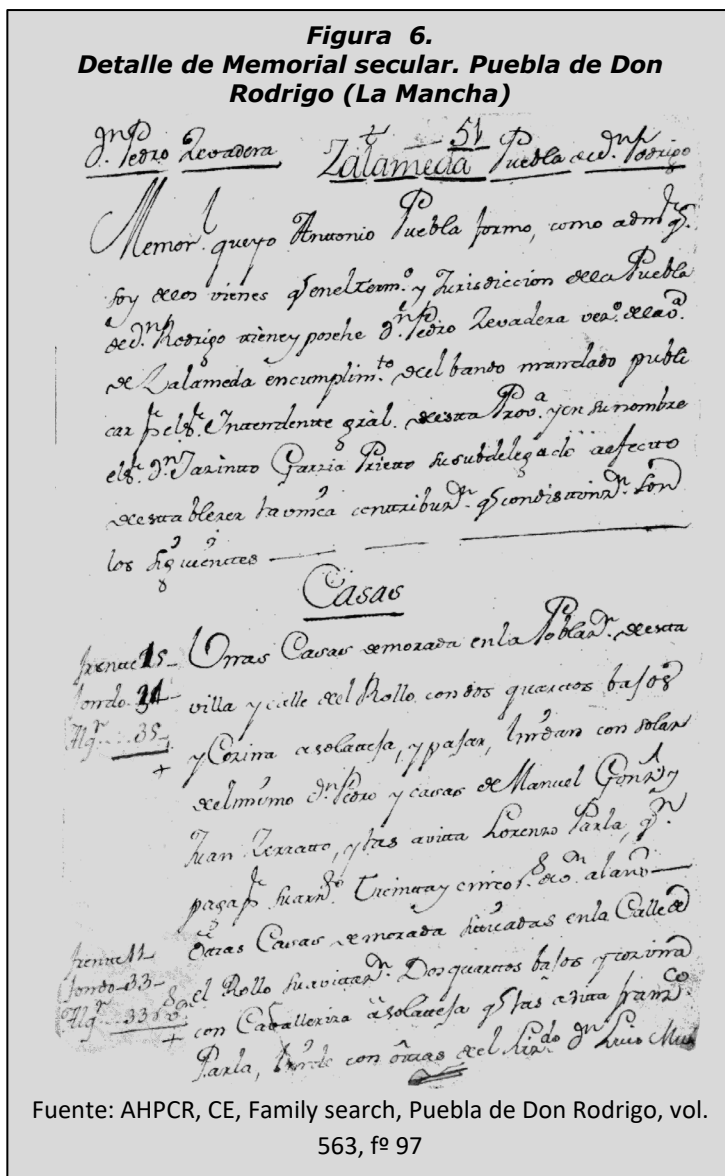 Figura 6.
Detalle de Memorial secular. Puebla de Don
Rodrigo (La Mancha)
Dn Pedro Zevadera
51
Zalameda Puebla de dn Rodrigo
Memorl. que yo Anttonio Puebla formo, como admr. q.
soy de los vienes q en el termo. y Jurisdiccion de la Puebla
de dn. Rodrigo tiene y poshe dn. Pedro Zevadera vezo. de la va.
de Zalameda en cumplimto. del bando mandado publi
car pr. el sr. Intendente gral. de esta Prova. y en su nombre
el sr. dn. Jazintto Garzia Prietto su subdelegado a efecto
de establezer la vnica contribuzn. q con distinzn. son
los siguientes
Casas
frente 15
fondo 34
Alqr. 35
Unas Casas de morada en la Poblazn. de esta
villa y calle del Rollo con dos quartos bajos
y Cozina a solateja, y pajar, lindan con solar
del mismo dn. Pedro y casas de Manuel Gonz y
Juan Zerratto, y las avita Lorenzo Parla, qn.
paga pr. su arrdo. Treinta y cinco rs. de vn. al año
frente 11
fondo 33
Alqr. 33
Otras Casas de morada situadas en la Calle del
el Rollo su avitazn. Dos quartos bajos y cozina
con Caballeriza a solateja q las avita Franco.
Parla, linde con otras del Lizdo. dn. Luis Muñ
Fuente: AHPCR, CE, Family search, Puebla de Don Rodrigo, vol.
563, fº 97